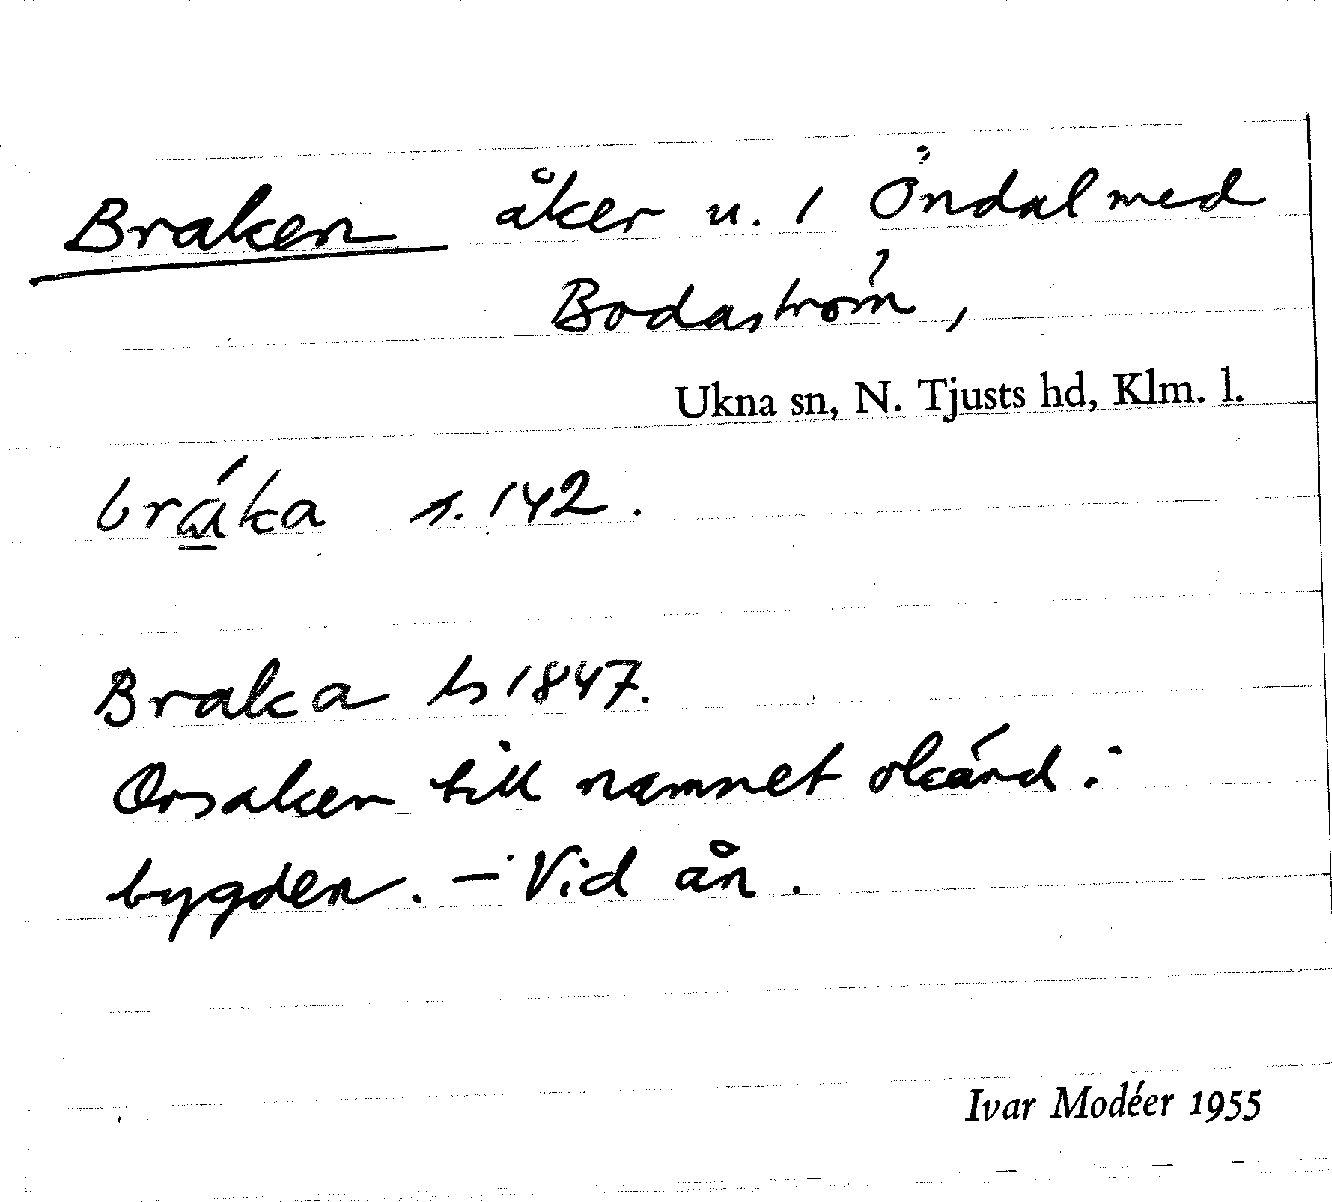 Braken åker u. 1 Öndal med
Bodaström,
Ukna sn, N. Tjusts hd, Klm. l.
bráka s. 142.
Braka ls 1847.
Orsaken till namnet okänd i
bygden. – Vid ån.
Ivar Modéer 1955